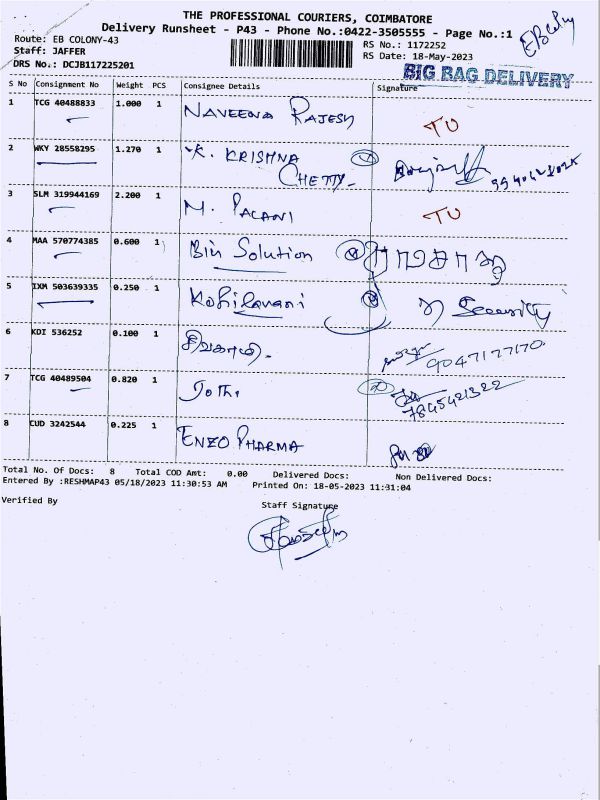 THE PROFESSIONAL COURIERS, COIMBATORE
Delivery Runsheet - P43 - Phone No.:0422-3505555 - Page No.:1
EB Colony
Route: EB COLONY-43
RS No.: 1172252
Staff: JAFFER
RS Date: 18-May-2023
DRS No.: DCJB117225201
BIG BAG DELIVERY
S No Consignment No Weight PCS Consignee Details Signature
1 TCG 40488833 1.000 1 NAVEENA RAJESH TU
2 WKY 28558295 1.270 1 K. KRISHNA
CHETTY.
3 SLM 319944169 2.200 1 M. PALANI TU
4 MAA 570774385 0.600 1 Bin Solution
5 IXM 503639335 0.250 1 Kohilavani Security
6 KDI 536252 0.100 1 சிவகாமி. 9047177170
7 TCG 40489504 0.820 1 Jothi
7845421322
8 CUD 3242544 0.225 1 ENZO PHARMA
Total No. Of Docs: 8 Total COD Amt: 0.00 Delivered Docs: Non Delivered Docs:
Entered By :RESHMAP43 05/18/2023 11:30:53 AM Printed On: 18-05-2023 11:31:04
Verified By
Staff Signature